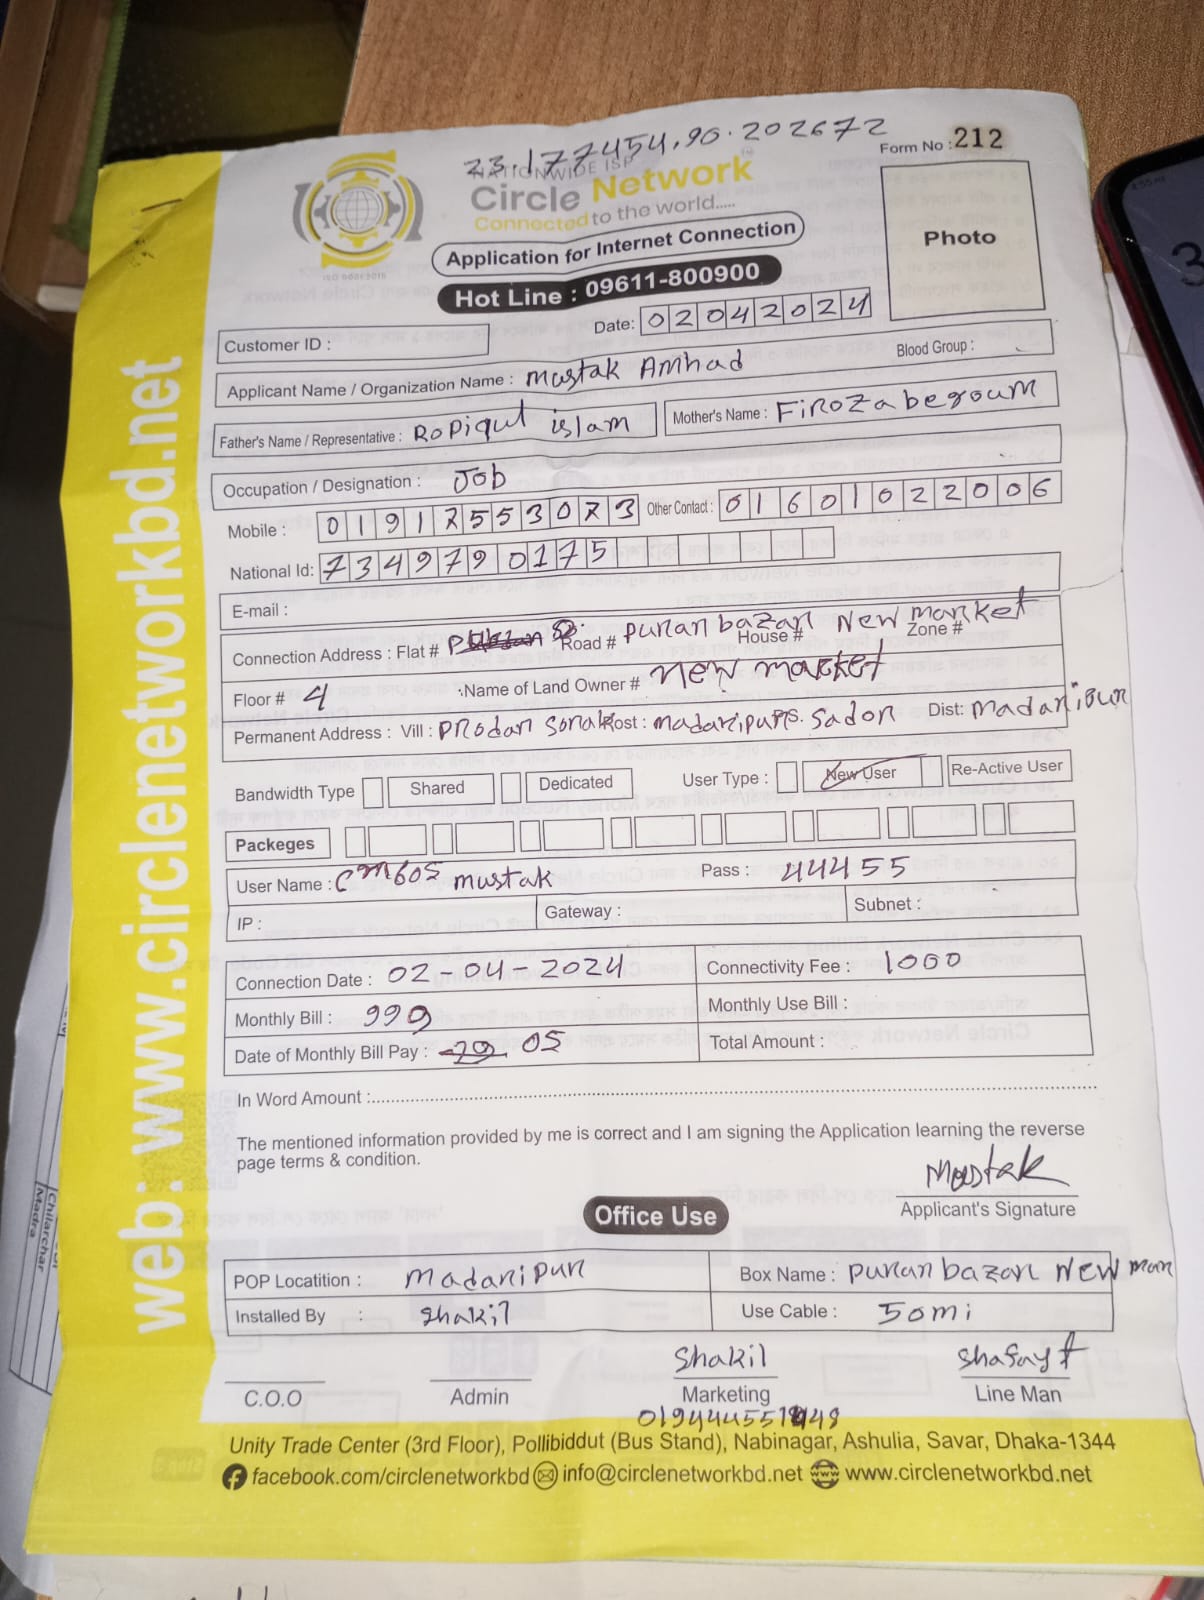 23.177454,90.202672
Form No : 212
NATIONWIDE ISP
Circle Network
Connected to the world.....
ISO 9001:2015
Application for Internet Connection
Photo
Hot Line : 09611-800900
Date: 02042024
Customer ID :
Applicant Name / Organization Name : Mustak Amhad Blood Group :
Father's Name / Representative : Ropiqul islam Mother's Name : Firoza begoum
Occupation / Designation : Job
Mobile : 01917553073 Other Contact : 01601022006
National Id: 7349790175
E-mail :
Connection Address : Flat # Road # puran bazar New market House # Zone #
Floor # 4 Name of Land Owner # New market
Permanent Address : Vill : Prodan Sorak Post : madaripur P.S. Sador Dist: madaripur
Bandwidth Type Shared Dedicated User Type : New User Re-Active User
Packeges
User Name : cm605 mustak Pass : 44455
IP : Gateway : Subnet :
Connection Date : 02-04-2024 Connectivity Fee : 1000
Monthly Bill : 999 Monthly Use Bill :
Date of Monthly Bill Pay : 05 Total Amount :
In Word Amount :
The mentioned information provided by me is correct and I am signing the Application learning the reverse
page terms & condition.
Mustak
Applicant's Signature
Office Use
POP Locatition : madaripur Box Name : puran bazar New mar
Installed By : Shakil Use Cable : 50mi
Shakil
C.O.O Admin Marketing Line Man
Unity Trade Center (3rd Floor), Pollibiddut (Bus Stand), Nabinagar, Ashulia, Savar, Dhaka-1344
facebook.com/circlenetworkbd info@circlenetworkbd.net www.circlenetworkbd.net
web: www.circlenetworkbd.net
Chilarchar
Madra